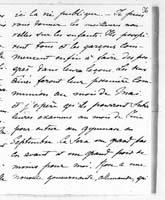 ici la vie publique... Je puis
vous donner les meilleures nou-
velles sur les enfants. Ils prospè-
rent tous et les garçons com-
mencent enfin à faire des pro-
grès dans leurs leçons. Les
feront leur première Com-
munion au mois de Mai
et j'espère qu'ils pourront
leurs examens au mois de Juin
pour entrer au gymnase en
Septembre. Ce sera un grand pas
en avant et un grand
pour moi. Nous avons une
nouvelle gouvernante allemande, qui